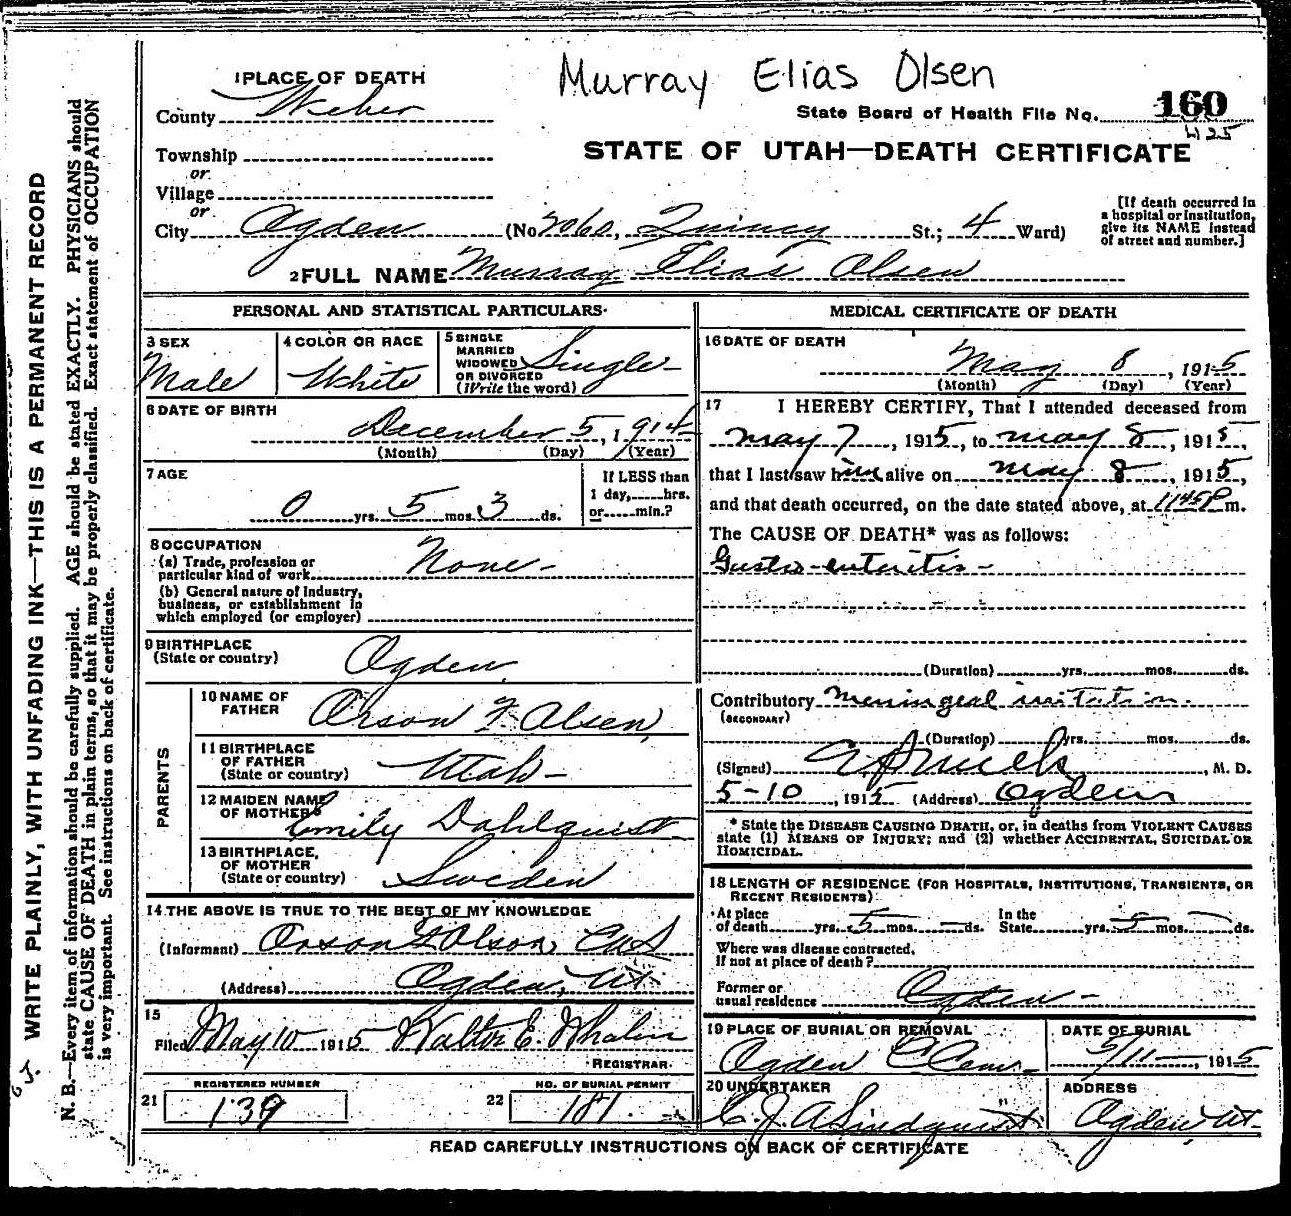 Murray Elias Olsen
1 PLACE OF DEATH
County Weber
State Board of Health File No. 160
425
Township
or
Village
or
STATE OF UTAH—DEATH CERTIFICATE
City Ogden (No 2060, Quincy St.; 4 Ward)
[If death occurred in
a hospital or institution,
give its NAME instead
of street and number.]
2 FULL NAME Murray Elias Olsen
PERSONAL AND STATISTICAL PARTICULARS
3 SEX
Male
4 COLOR OR RACE
White
5 SINGLE
MARRIED
WIDOWED
OR DIVORCED
(Write the word)
Single
6 DATE OF BIRTH
December 5, 1914
(Month) (Day) (Year)
7 AGE
0 yrs. 5 mos. 3 ds.
If LESS than
1 day, hrs.
or min.?
8 OCCUPATION
(a) Trade, profession or
particular kind of work None
(b) General nature of industry,
business, or establishment in
which employed (or employer)
9 BIRTHPLACE
(State or country)
Ogden
PARENTS
10 NAME OF
FATHER
Orson F. Olsen,
11 BIRTHPLACE
OF FATHER
(State or country)
Utah
12 MAIDEN NAME
OF MOTHER
Emily Dahlquist
13 BIRTHPLACE,
OF MOTHER
(State or country)
Sweden
14 THE ABOVE IS TRUE TO THE BEST OF MY KNOWLEDGE
(Informant) Orson F Olson
(Address) Ogden, Ut.
15
Filed May 10 1915 Walter E. Whalen
REGISTRAR.
21 REGISTERED NUMBER
139
22 NO. OF BURIAL PERMIT
181
MEDICAL CERTIFICATE OF DEATH
16 DATE OF DEATH
May 8, 1915
(Month) (Day) (Year)
17 I HEREBY CERTIFY, That I attended deceased from
May 7, 1915, to May 8, 1915,
that I last saw him alive on May 8, 1915,
and that death occurred, on the date stated above, at 1145P m.
The CAUSE OF DEATH* was as follows:
Gastro-enteritis
(Duration) yrs. mos. ds.
Contributory Meningeal irritation
(SECONDARY)
(Duration) yrs. mos. ds.
(Signed) M. D.
5-10, 1915 (Address) Ogden
* State the DISEASE CAUSING DEATH, or, in deaths from VIOLENT CAUSES
state (1) MEANS OF INJURY; and (2) whether ACCIDENTAL, SUICIDAL OR
HOMICIDAL.
18 LENGTH OF RESIDENCE (FOR HOSPITALS, INSTITUTIONS, TRANSIENTS, OR
RECENT RESIDENTS)
At place
of death yrs. 5 mos. — ds.
In the
State yrs. 5 mos. — ds.
Where was disease contracted,
if not at place of death?
Former or
usual residence Ogden
19 PLACE OF BURIAL OR REMOVAL
Ogden C Cem.
DATE OF BURIAL
5/11 1915
20 UNDERTAKER
C. J. A Lindquist
ADDRESS
Ogden, Ut.
READ CAREFULLY INSTRUCTIONS ON BACK OF CERTIFICATE
WRITE PLAINLY, WITH UNFADING INK—THIS IS A PERMANENT RECORD
N. B.—Every item of information should be carefully supplied. AGE should be stated EXACTLY. PHYSICIANS should
state CAUSE OF DEATH in plain terms, so that it may be properly classified. Exact statement of OCCUPATION
is very important. See instructions on back of certificate.